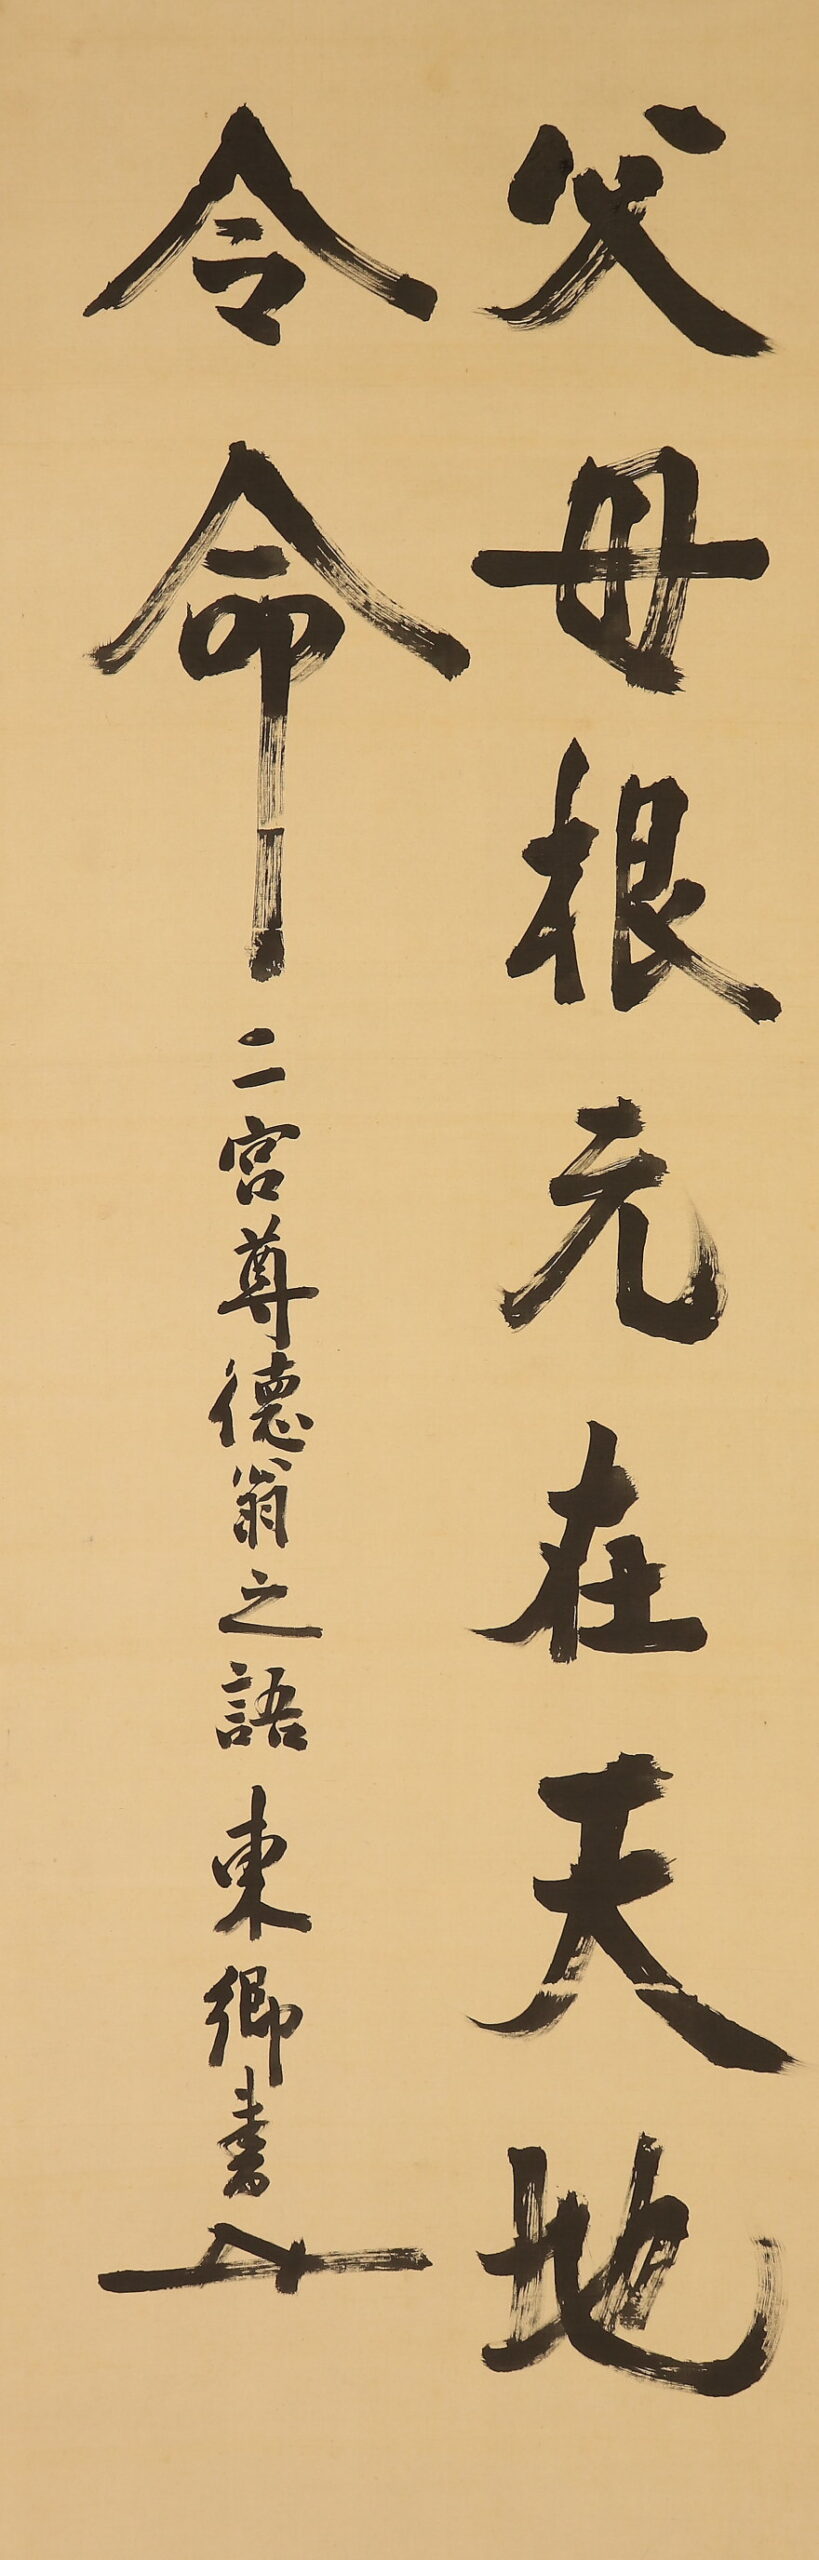 父母根元在天地
令命二宮尊德翁之語東郷書